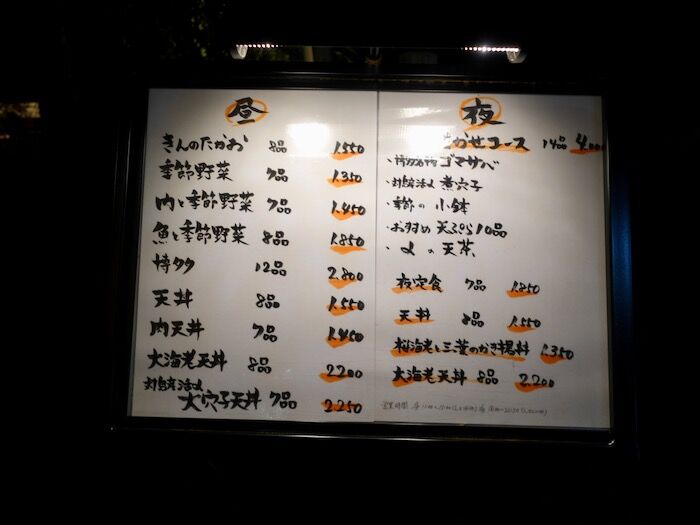 昼
きんのたかお 8品 1.550
季節野菜 7品 1.350
肉と季節野菜 7品 1.450
魚と季節野菜 8品 1.850
博タタ 12品 2.800
天丼 8品 1.550
肉天丼 7品 1.450
大海老天丼 8品 2200
対馬活〆
大穴子天丼 7品 2.250
夜
まかせコース 14品 4.000
・博多名物 ゴマサバ
・対馬活〆 煮穴子
・季節の 小鉢
・お好み 天ぷら10品
・〆の天茶
夜定食 7品 1.850
天丼 8品 1.550
桜海老と三葉のかき揚丼 1.350
大海老天丼 8品 2.200
営業時間